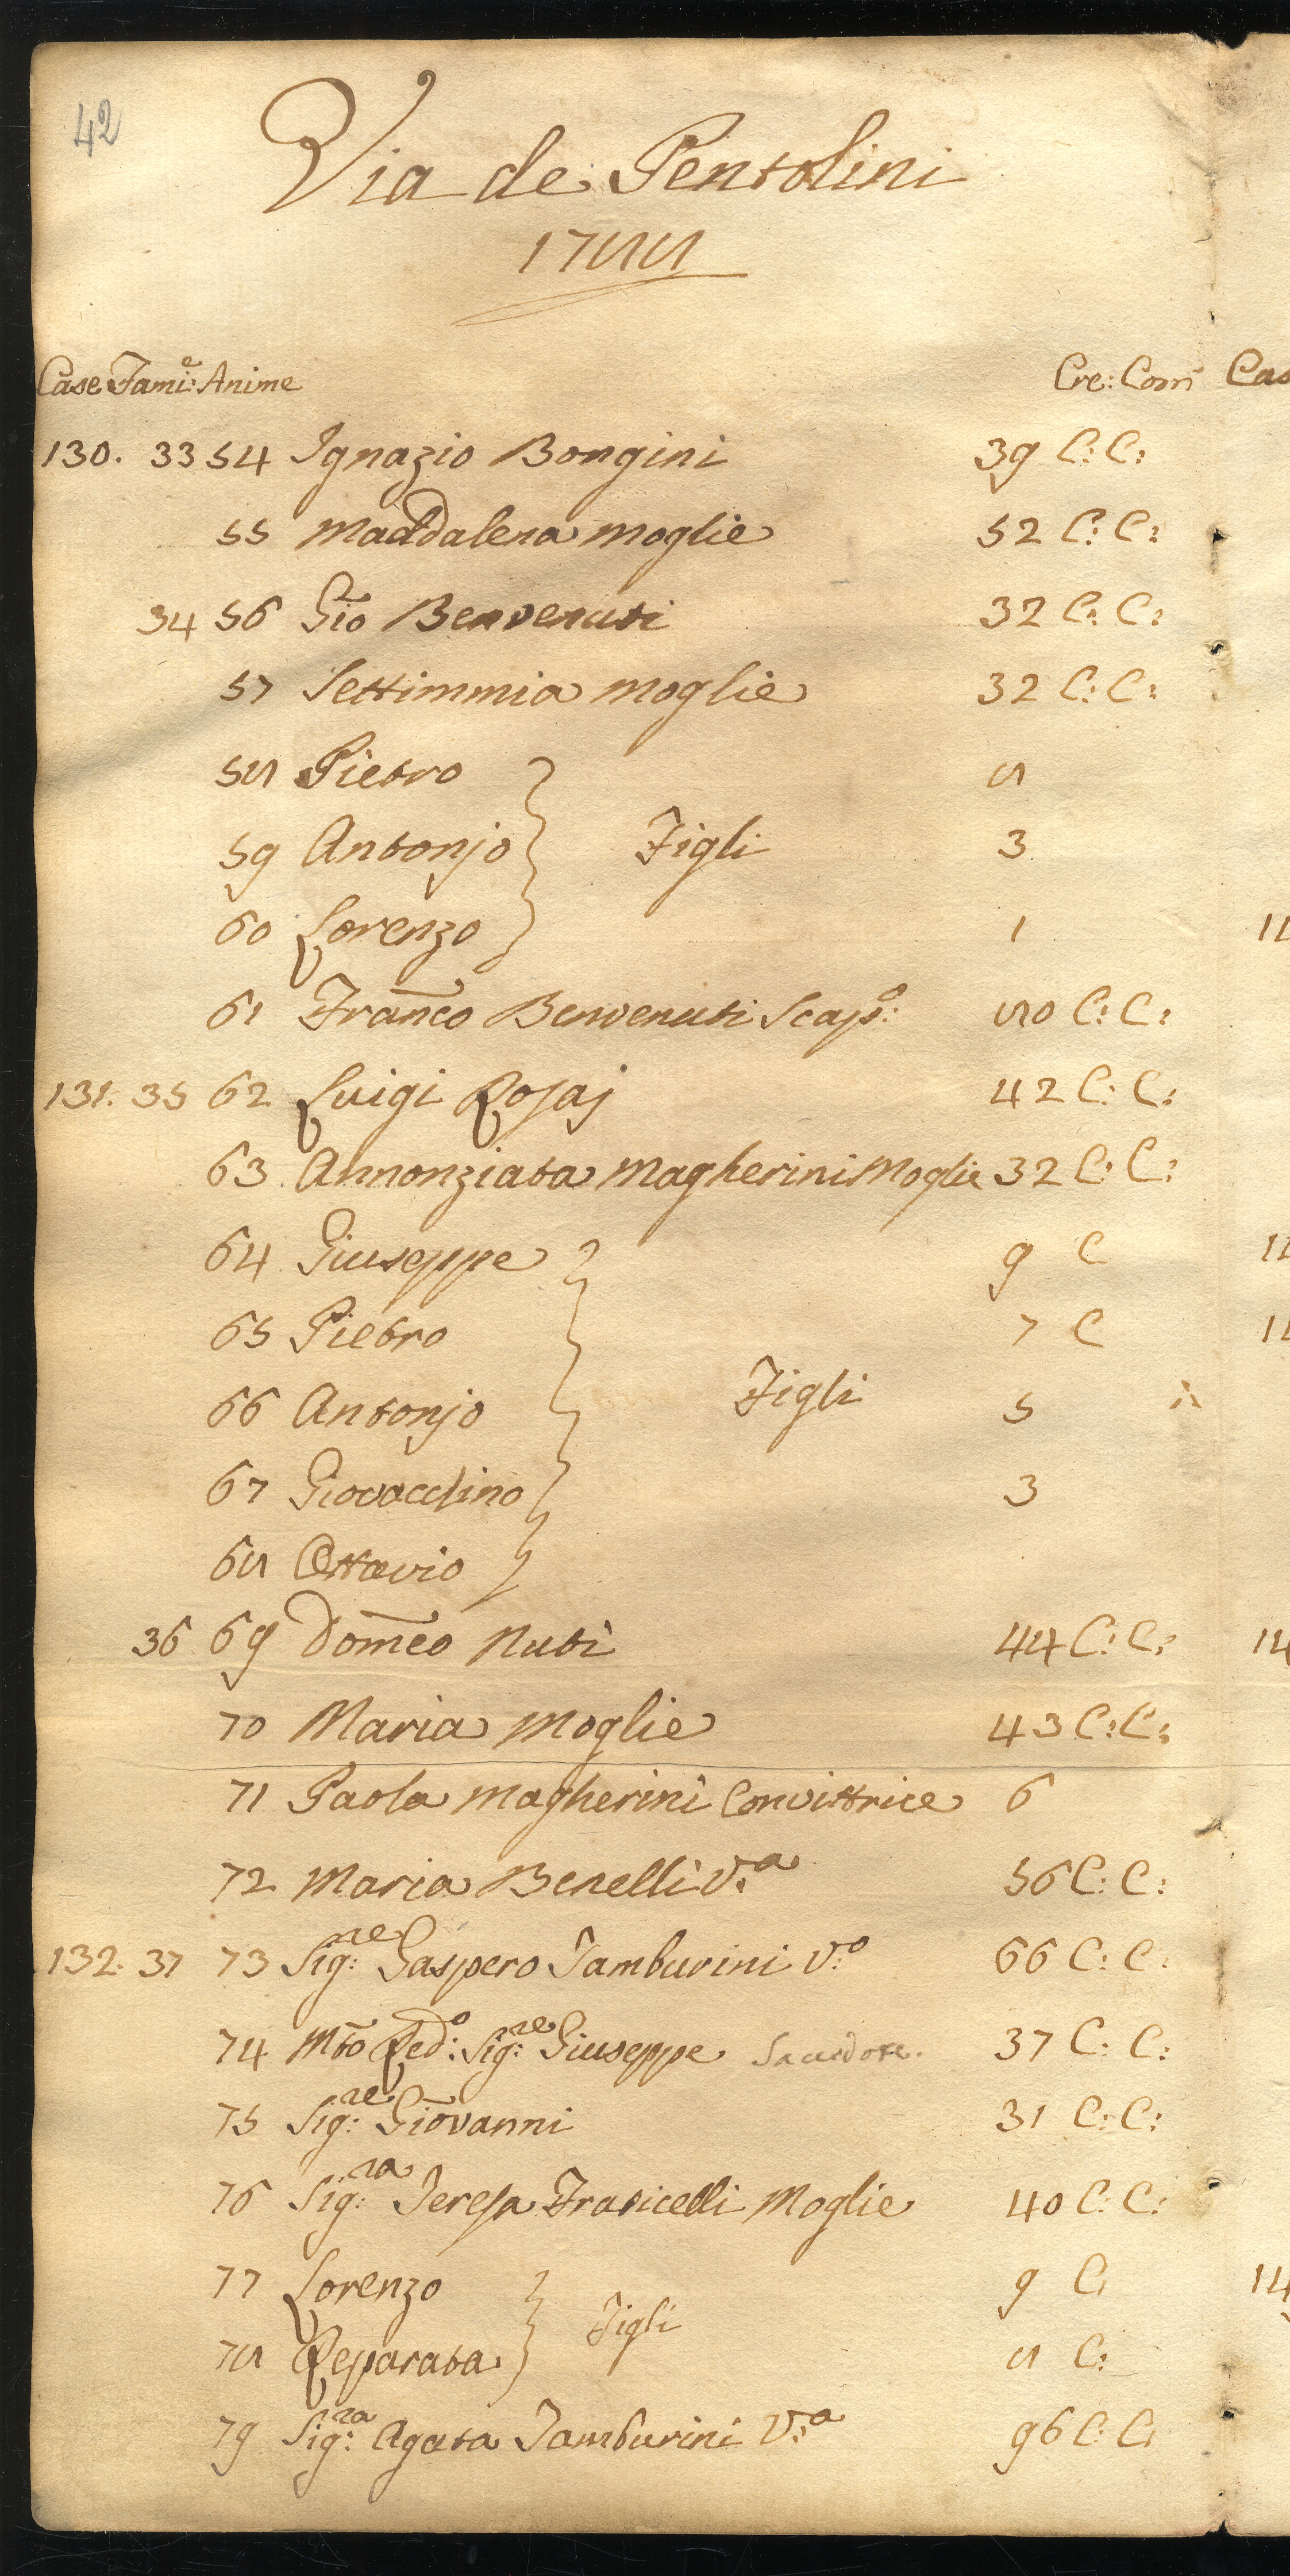 42
Via de Pentolini
1788
Case Fami:e Anime Cre: Com
130. 33 54 Ignazio Bongini 39 C: C:
55 Maddalena moglie 52 C: C:
34 56 Gio Benvenuti 32 C: C:
57 Settimmia moglie 32 C: C:
58 Pietro 8
59 Antonjo Figli 3
60 Lorenzo 1
61 Franco Benvenuti Scap:o 80 C: C:
131. 35 62 Luigi Rosaj 42 C: C:
63 Annonziata Magherini Moglie 32 C: C:
64 Giuseppe 9 C
65 Pietro 7 C
66 Antonjo Figli 5
67 Giovacchino 3
68 Ottavio
36 69 Domeco Nuti 44 C: C:
70 Maria Moglie 43 C: C:
71 Paola Magherini Convittrice 6
72 Maria Benelli V:a 56 C: C:
132. 37 73 Sig:re Gaspero Tamburini V:o 66 C: C:
74 Mto Red:o Sig:re Giuseppe Sacerdote. 37 C: C:
75 Sig:re Giovanni 31 C: C:
76 Sig:ra Teresa Fraticelli Moglie 40 C: C:
77 Lorenzo Figli 9 C:
78 Reparata 8 C:
79 Sig:ra Agata Tamburini V:a 96 C: C: